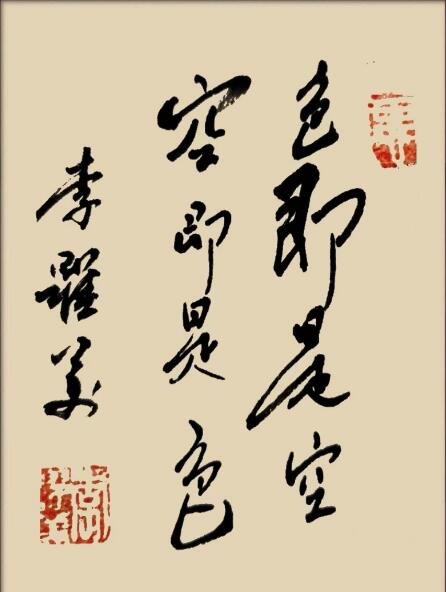 色即是空
空即是色
李躍